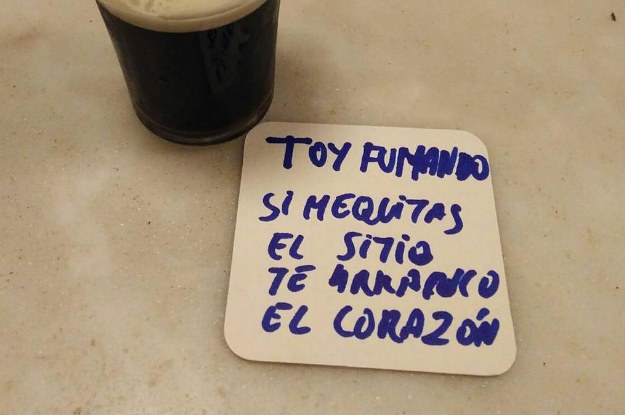 TOY FUMANDO
SI ME QUITAS
EL SITIO
TE ARRANCO
EL CORAZÓN